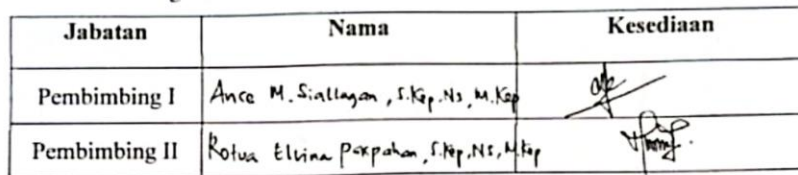 Jabatan Nama Kesediaan
Pembimbing I Ance M. Siallagan, S.Kep.Ns, M.Kep
Pembimbing II Rotua Elvina Pakpahan, S.Kep,Ns, M.Kep